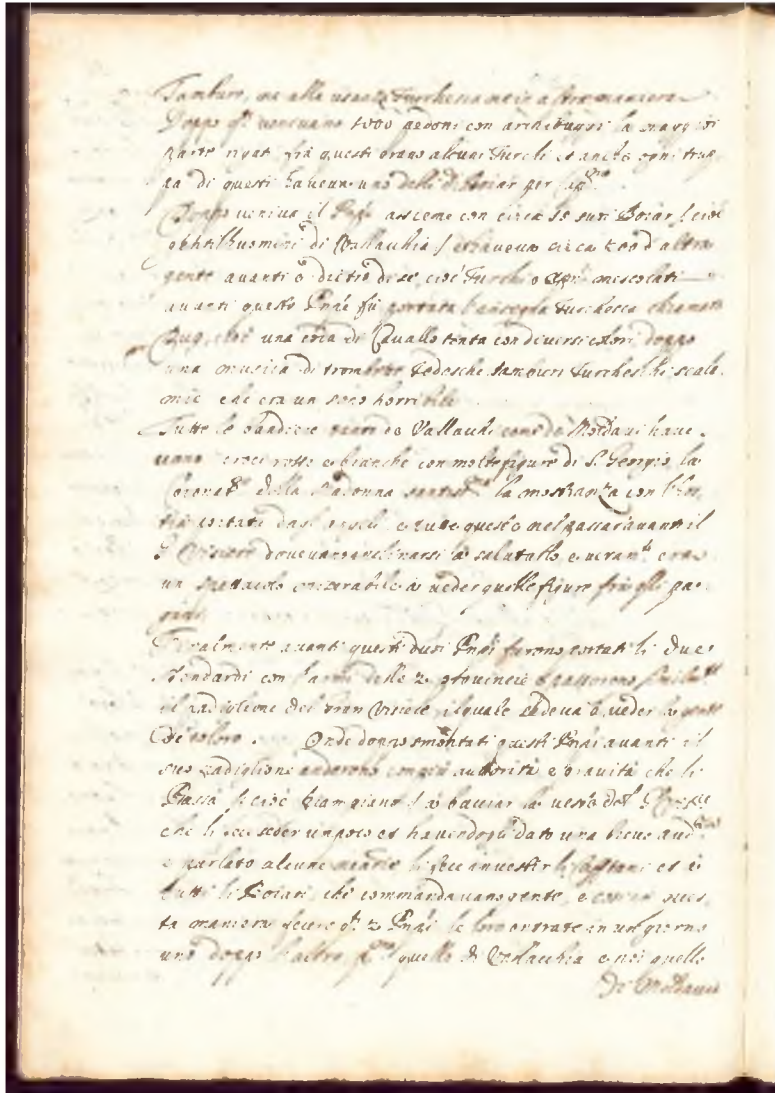 Tamburo, ma alla usanza Turchesca et in altre maniera
Doppo qti venivano 1000 pedoni con archibugri la magg ior
parte rigati frà questi erano alcuni Turchi et anche ogni trup
pa di questi haveva uno delli di Boiar per
Doppo veniva il assieme con circa 50 suoi Boiar / cioè
Gentilhuomini di Vallachia / et haveva circa d'altra
gente avanti ò dietro di se cioè Turchi o mescolati
avanti questo Pnpe fù portata l'insegna Turchesca chiamata
cioè una coda di Cavallo tenta con diversi colori doppo
una musica di trombette Todesche tamburi Turcheschi e scala
mie che era un sono horribile
Tutte le bandiere de Vallachi come de Moldavi have
vano croci rosse e bianche con molte figure di S. Georgio, la
della Madonna la mostranza con l'hos
tia portati e tutto questo nel passar avanti il
Visiere dovevano inclinarsi à salutallo e veramte era
un spettacolo miserabile à veder quelle figure frà gli pa
gani
Finalmente avanti questi duoi Pnpi furono portati li due
stendardi con l'armi delle 2 provincie e passorono
il padiglione del Gran Visiere, il quale sedeva à veder la gente
di coloro. Onde doppo smontati questi Pnpi avanti il
suo padiglione andorono con più autorità e gravità che li
Bassà à bacciar la veste del
che li fece seder un poco et havendogli dato una breve
e parlato alcune li fece investir li Cafftani et à
tutti li Boiari, che commandavano gente, e ques
ta maniera fecero qti 2 Pnpi le loro entrate in un giorno
uno doppo l'altro quello di Vallachia e poi quello
di Moldavia